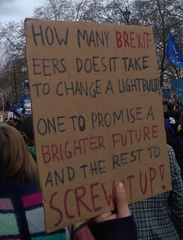 HOW MANY BREXIT-
EERS DOES IT TAKE
TO CHANGE A LIGHTBULB?
ONE TO PROMISE A
BRIGHTER FUTURE
AND THE REST TO
SCREW IT UP!